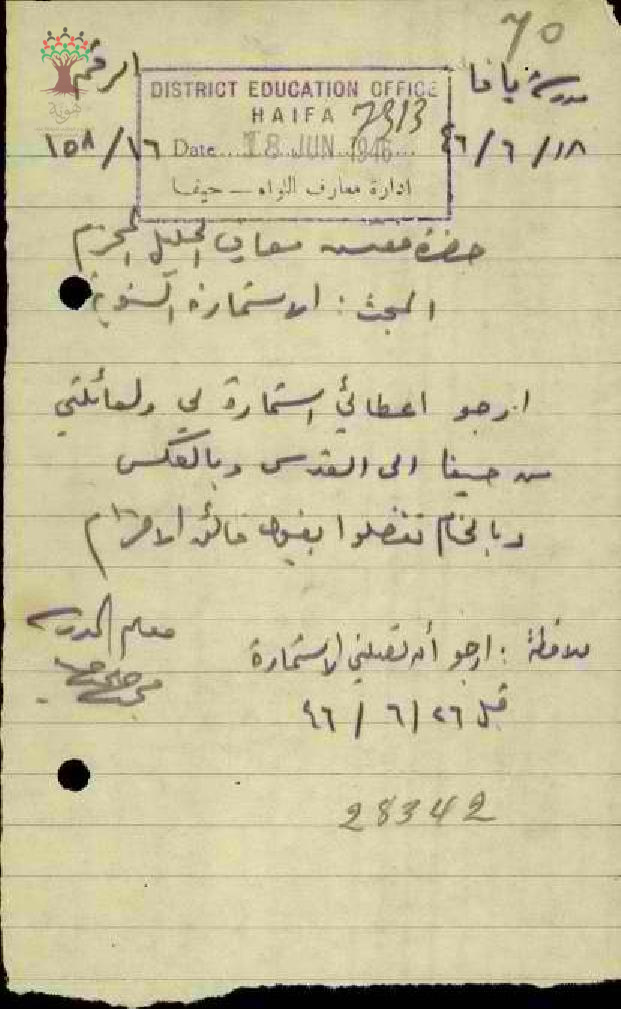 70
مدرسة يافا
الرقم
DISTRICT EDUCATION OFFICE
HAIFA 7313
Date.... 18 JUN 1946 ....
ادارة معارف اللواء — حيفا
١٨ / ٦ / ٤٦
١٥٨/١٦
حضرة مفتش معارف الجليل المحترم
المبحث : الاستمارة السنوية
ارجو اعطائي استمارة لي ولعائلتي
من حيفا الى القدس وبالعكس
وبالختام تفضلوا بقبول فائق الاحترام
معلم المدرسة
ملاحظة : ارجو أن تصلني الاستمارة
قبل ٢٦ / ٦ / ٤٦
28342